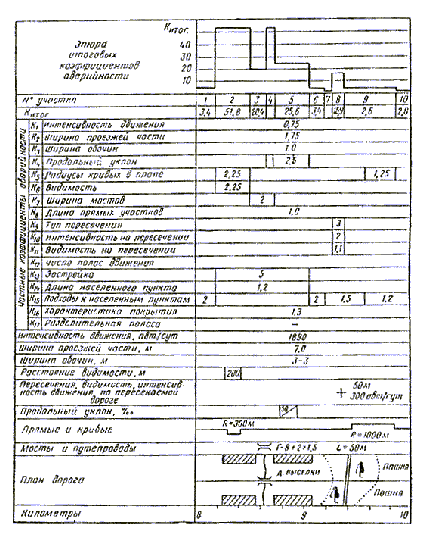 Kитог.
эпюра
итоговых
коэффициентов
аварийности
40
30
20
10
N° участка 1 2 3 4 5 6 7 8 9 10
Kитог 3,4
Частные коэффициенты аварийности
K1 Интенсивность движения 0,75
K2 Ширина проезжей части 1,75
K3 Ширина обочин 1,0
K4 Продольный уклон 2,5
K5 Радиусы кривых в плане 2,25 1,25
K6 Видимость 2,25
K7 Ширина мостов 2
K8 Длина прямых участков 1,0
K9 Тип пересечения 3
K10 Интенсивность на пересечении 2
K11 Видимость на пересечении 1,1
K12 Число полос движения
K13 Застройка 5
K14 Длина населенного пункта 1,2
K15 Подходы к населенным пунктам 2 2 1,5 1,2
K16 Характеристика покрытия 1,3
K17 Разделительная полоса –
Интенсивность движения, авт/сут
Ширина проезжей части, м 7,0
Ширина обочин, м 3-3
Расстояние видимости, м 200
Пересечения, видимость, интенсив-
ность движения, на пересекаемой
дороге
60м
300 авт/сут
Продольный уклон, ‰
Прямые и кривые R=350м R=1000м
Мосты и путепроводы Г-8+2×1,5 L=50м
План дороги д. Выселки Пашня
Пашня
Километры 8 9 10